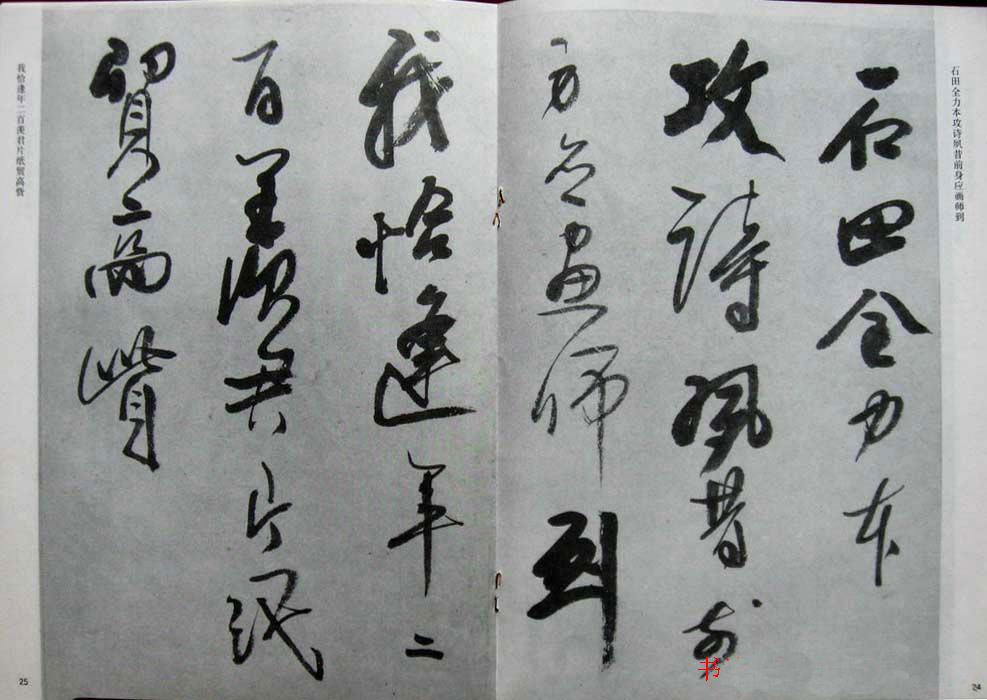 石田全力本攻诗夙昔前身应画师到
石田全力本
攻詩夙昔前
身应畫师
到
我恰逢年二
百羡君片纸
贸高赀
我恰逢年二百羡君片纸贸高赀
书
24
25